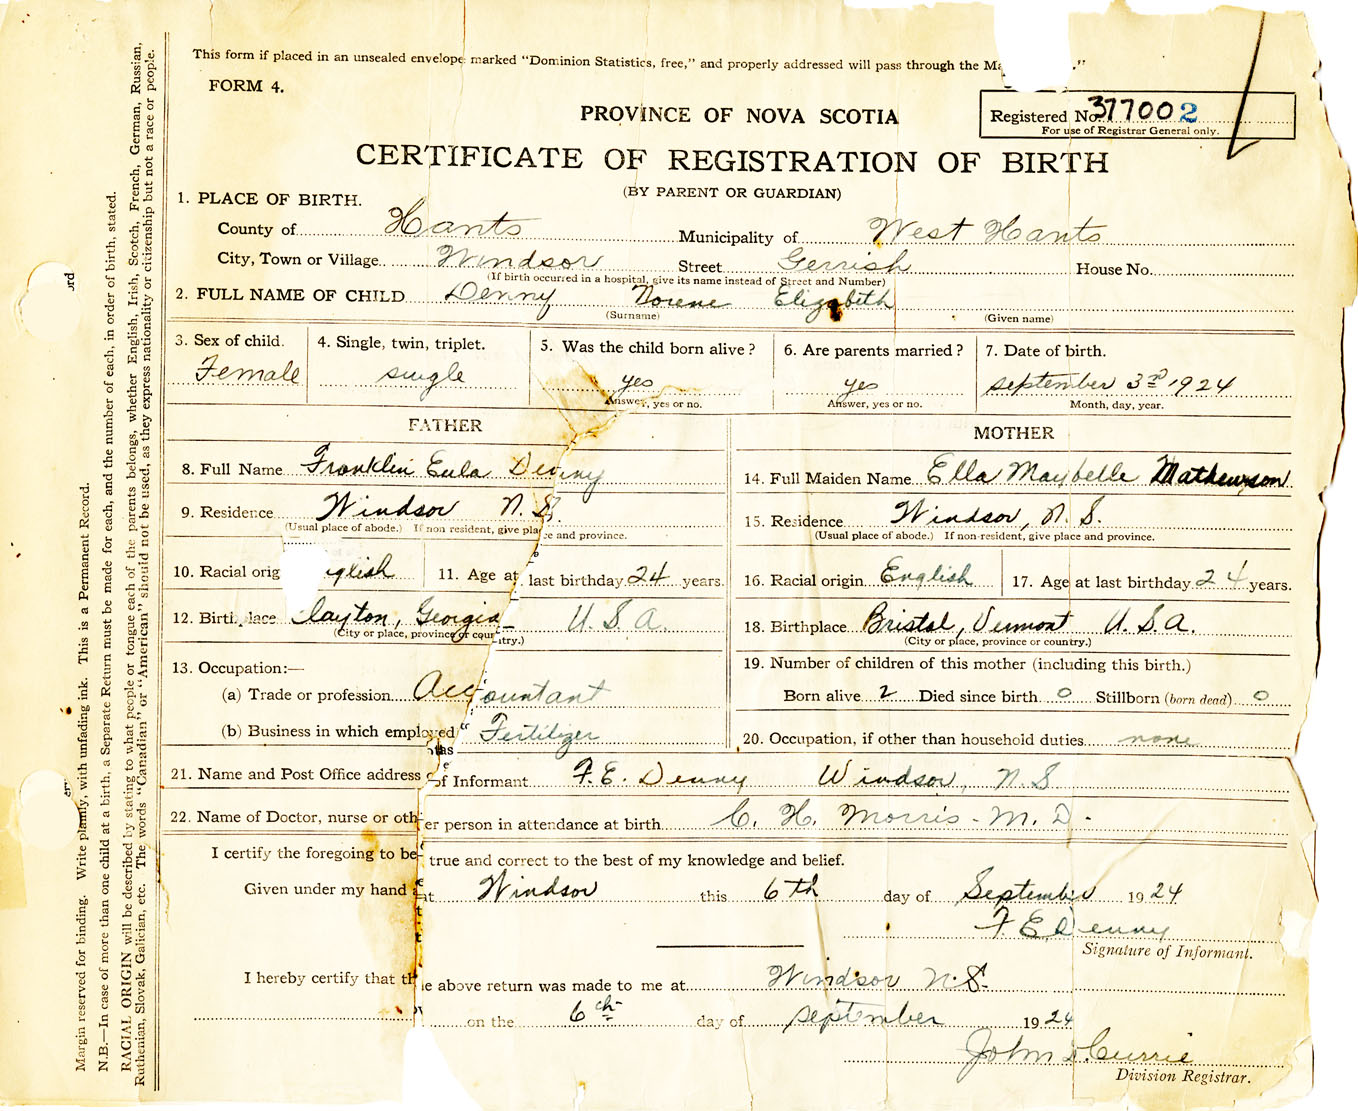 This form if placed in an unsealed envelope marked "Dominion Statistics, free," and properly addressed will pass through the Ma ."
FORM 4.
PROVINCE OF NOVA SCOTIA
Registered No. 377002
For use of Registrar General only.
CERTIFICATE OF REGISTRATION OF BIRTH
(BY PARENT OR GUARDIAN)
1. PLACE OF BIRTH.
County of Hants Municipality of West Hants
City, Town or Village Windsor Street Gerrish House No.
(If birth occurred in a hospital, give its name instead of Street and Number)
2. FULL NAME OF CHILD Denny Norene Elizabeth
(Surname) (Given name)
3. Sex of child. 4. Single, twin, triplet. 5. Was the child born alive? 6. Are parents married? 7. Date of birth.
Female single yes yes september 3rd 1924
Answer, yes or no. Answer, yes or no. Month, day, year.
FATHER
8. Full Name Franklin Eula Denny
9. Residence Windsor N.S.
(Usual place of abode.) If non resident, give place and province.
10. Racial orig nglish 11. Age at last birthday 24 years.
12. Birthplace Clayton, Georgia - U.S.A.
(City or place, province or country.)
13. Occupation:—
(a) Trade or profession Accountant
(b) Business in which employed Fertilizer
MOTHER
14. Full Maiden Name Ella Maybelle Mathewson
15. Residence Windsor, N.S.
(Usual place of abode.) If non-resident, give place and province.
16. Racial origin English 17. Age at last birthday 24 years.
18. Birthplace Bristol, Vermont U.S.A.
(City or place, province or country.)
19. Number of children of this mother (including this birth.)
Born alive 2 Died since birth 0 Stillborn (born dead) 0
20. Occupation, if other than household duties none
21. Name and Post Office address of Informant F. E. Denny Windsor, N.S
22. Name of Doctor, nurse or other person in attendance at birth C. H. Morris - M. D.
I certify the foregoing to be true and correct to the best of my knowledge and belief.
Given under my hand at Windsor this 6th day of September 1924
F. E. Denny
Signature of Informant.
I hereby certify that the above return was made to me at Windsor N.S.
on the 6th day of september 1924
John D. Currie
Division Registrar.
Margin reserved for binding. Write plainly, with unfading ink. This is a Permanent Record.
N.B.—In case of more than one child at a birth, a Separate Return must be made for each, and the number of each, in order of birth, stated.
RACIAL ORIGIN will be described by stating to what people or tongue each of the parents belongs, whether English, Irish, Scotch, French, German, Russian,
Ruthenian, Slovak, Galician, etc. The words "Canadian" or "American" should not be used, as they express nationality or citizenship but not a race or people.